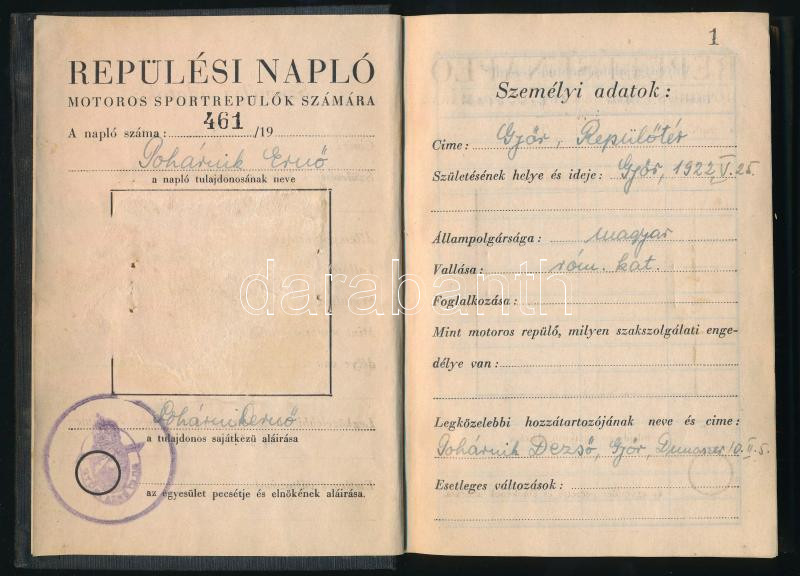 REPÜLÉSI NAPLÓ
MOTOROS SPORTREPÜLŐK SZÁMÁRA
A napló száma: 461 /19
Pohárnik Ernő
a napló tulajdonosának neve
Pohárnik Ernő
a tulajdonos sajátkezű aláírása
az egyesület pecsétje és elnökének aláírása.
1
Személyi adatok:
Cime: Győr, Repülőtér
Születésének helye és ideje: Győr, 1922 V. 25.
Állampolgársága: magyar
Vallása: róm. kat.
Foglalkozása:
Mint motoros repülő, milyen szakszolgálati enge-
délye van:
Legközelebbi hozzátartozójának neve és cime:
Pohárnik Dezső, Győr, 10. II. 5.
Esetleges változások:
darabanth